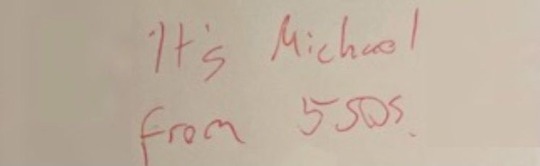 It's Michael
from 5SOS.